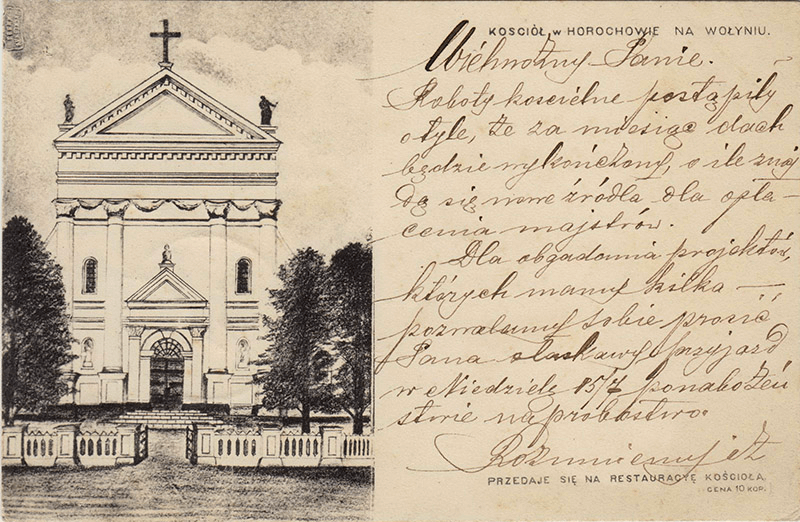 KOSCIÓŁ w HOROCHOWIE NA WOŁYNIU.
Wielmożny Panie.
Roboty kościelne postąpiły
o tyle, że za miesiąc dach
będzie wykończony, o ile znaj
dą się nowe źródła dla opła-
cenia majstrów.
Dla obgadania projektów,
których mamy kilka —
pozwalamy sobie prosić
Pana o łaskawy przyjazd
w Niedzielę 15/7 po nabożeń
stwie na probostwo.
Rozumiemy iż
PRZEDAJE SIĘ NA RESTAURACYĘ KOŚCIOŁA.
CENA 10 KOP.